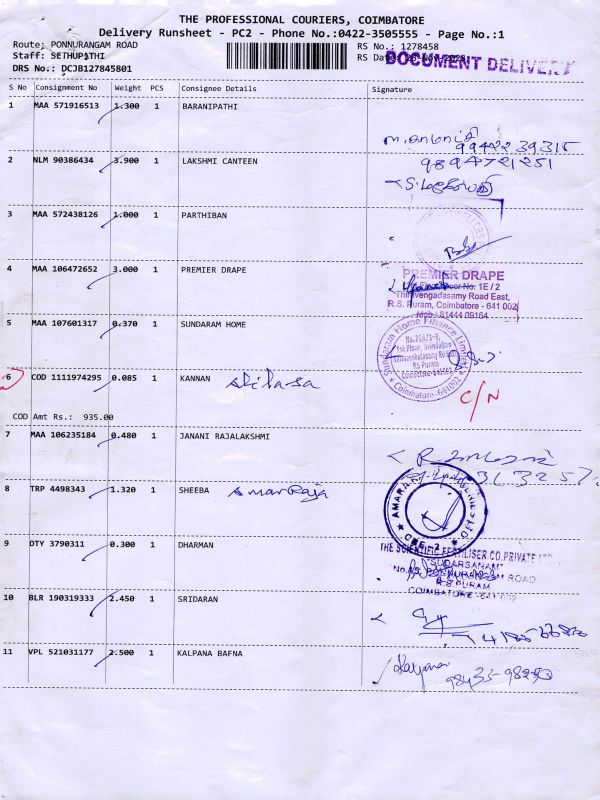 THE PROFESSIONAL COURIERS, COIMBATORE
Delivery Runsheet - PC2 - Phone No.:0422-3505555 - Page No.:1
Route: PONNURANGAM ROAD
RS No.: 1278458
Staff: SETHUPATHI
RS Date
DOCUMENT DELIVERY
DRS No.: DCJB127845801
S No Consignment No Weight PCS Consignee Details Signature
1 MAA 571916513 1.300 1 BARANIPATHI
99422 39315
2 NLM 90386434 3.900 1 LAKSHMI CANTEEN
9894721251
3 MAA 572438126 1.000 1 PARTHIBAN
4 MAA 106472652 3.000 1 PREMIER DRAPE
PREMIER DRAPE
No: 1E / 2
Thiruvengadasamy Road East,
R.S. Puram, Coimbatore - 641 002
Mob : 81444 09164
5 MAA 107601317 0.370 1 SUNDARAM HOME
Sundaram Home Finance Limited
R.S Puram
Coimbatore-641002
6 COD 1111974295 0.085 1 KANNAN
C/N
COD Amt Rs.: 935.00
7 MAA 106235184 0.480 1 JANANI RAJALAKSHMI
8 TRP 4498343 1.320 1 SHEEBA Amarraja
CBE-2
9 OTY 3790311 0.300 1 DHARMAN
THE SCIENTIFIC FERTILISER CO.PRIVATE LTD
"SUDARSANAM"
ROAD
R.S.PURAM
COIMBATORE-641 002
10 BLR 190319333 2.450 1 SRIDARAN
11 VPL 521031177 2.500 1 KALPANA BAFNA
Kalpana
98435-98290